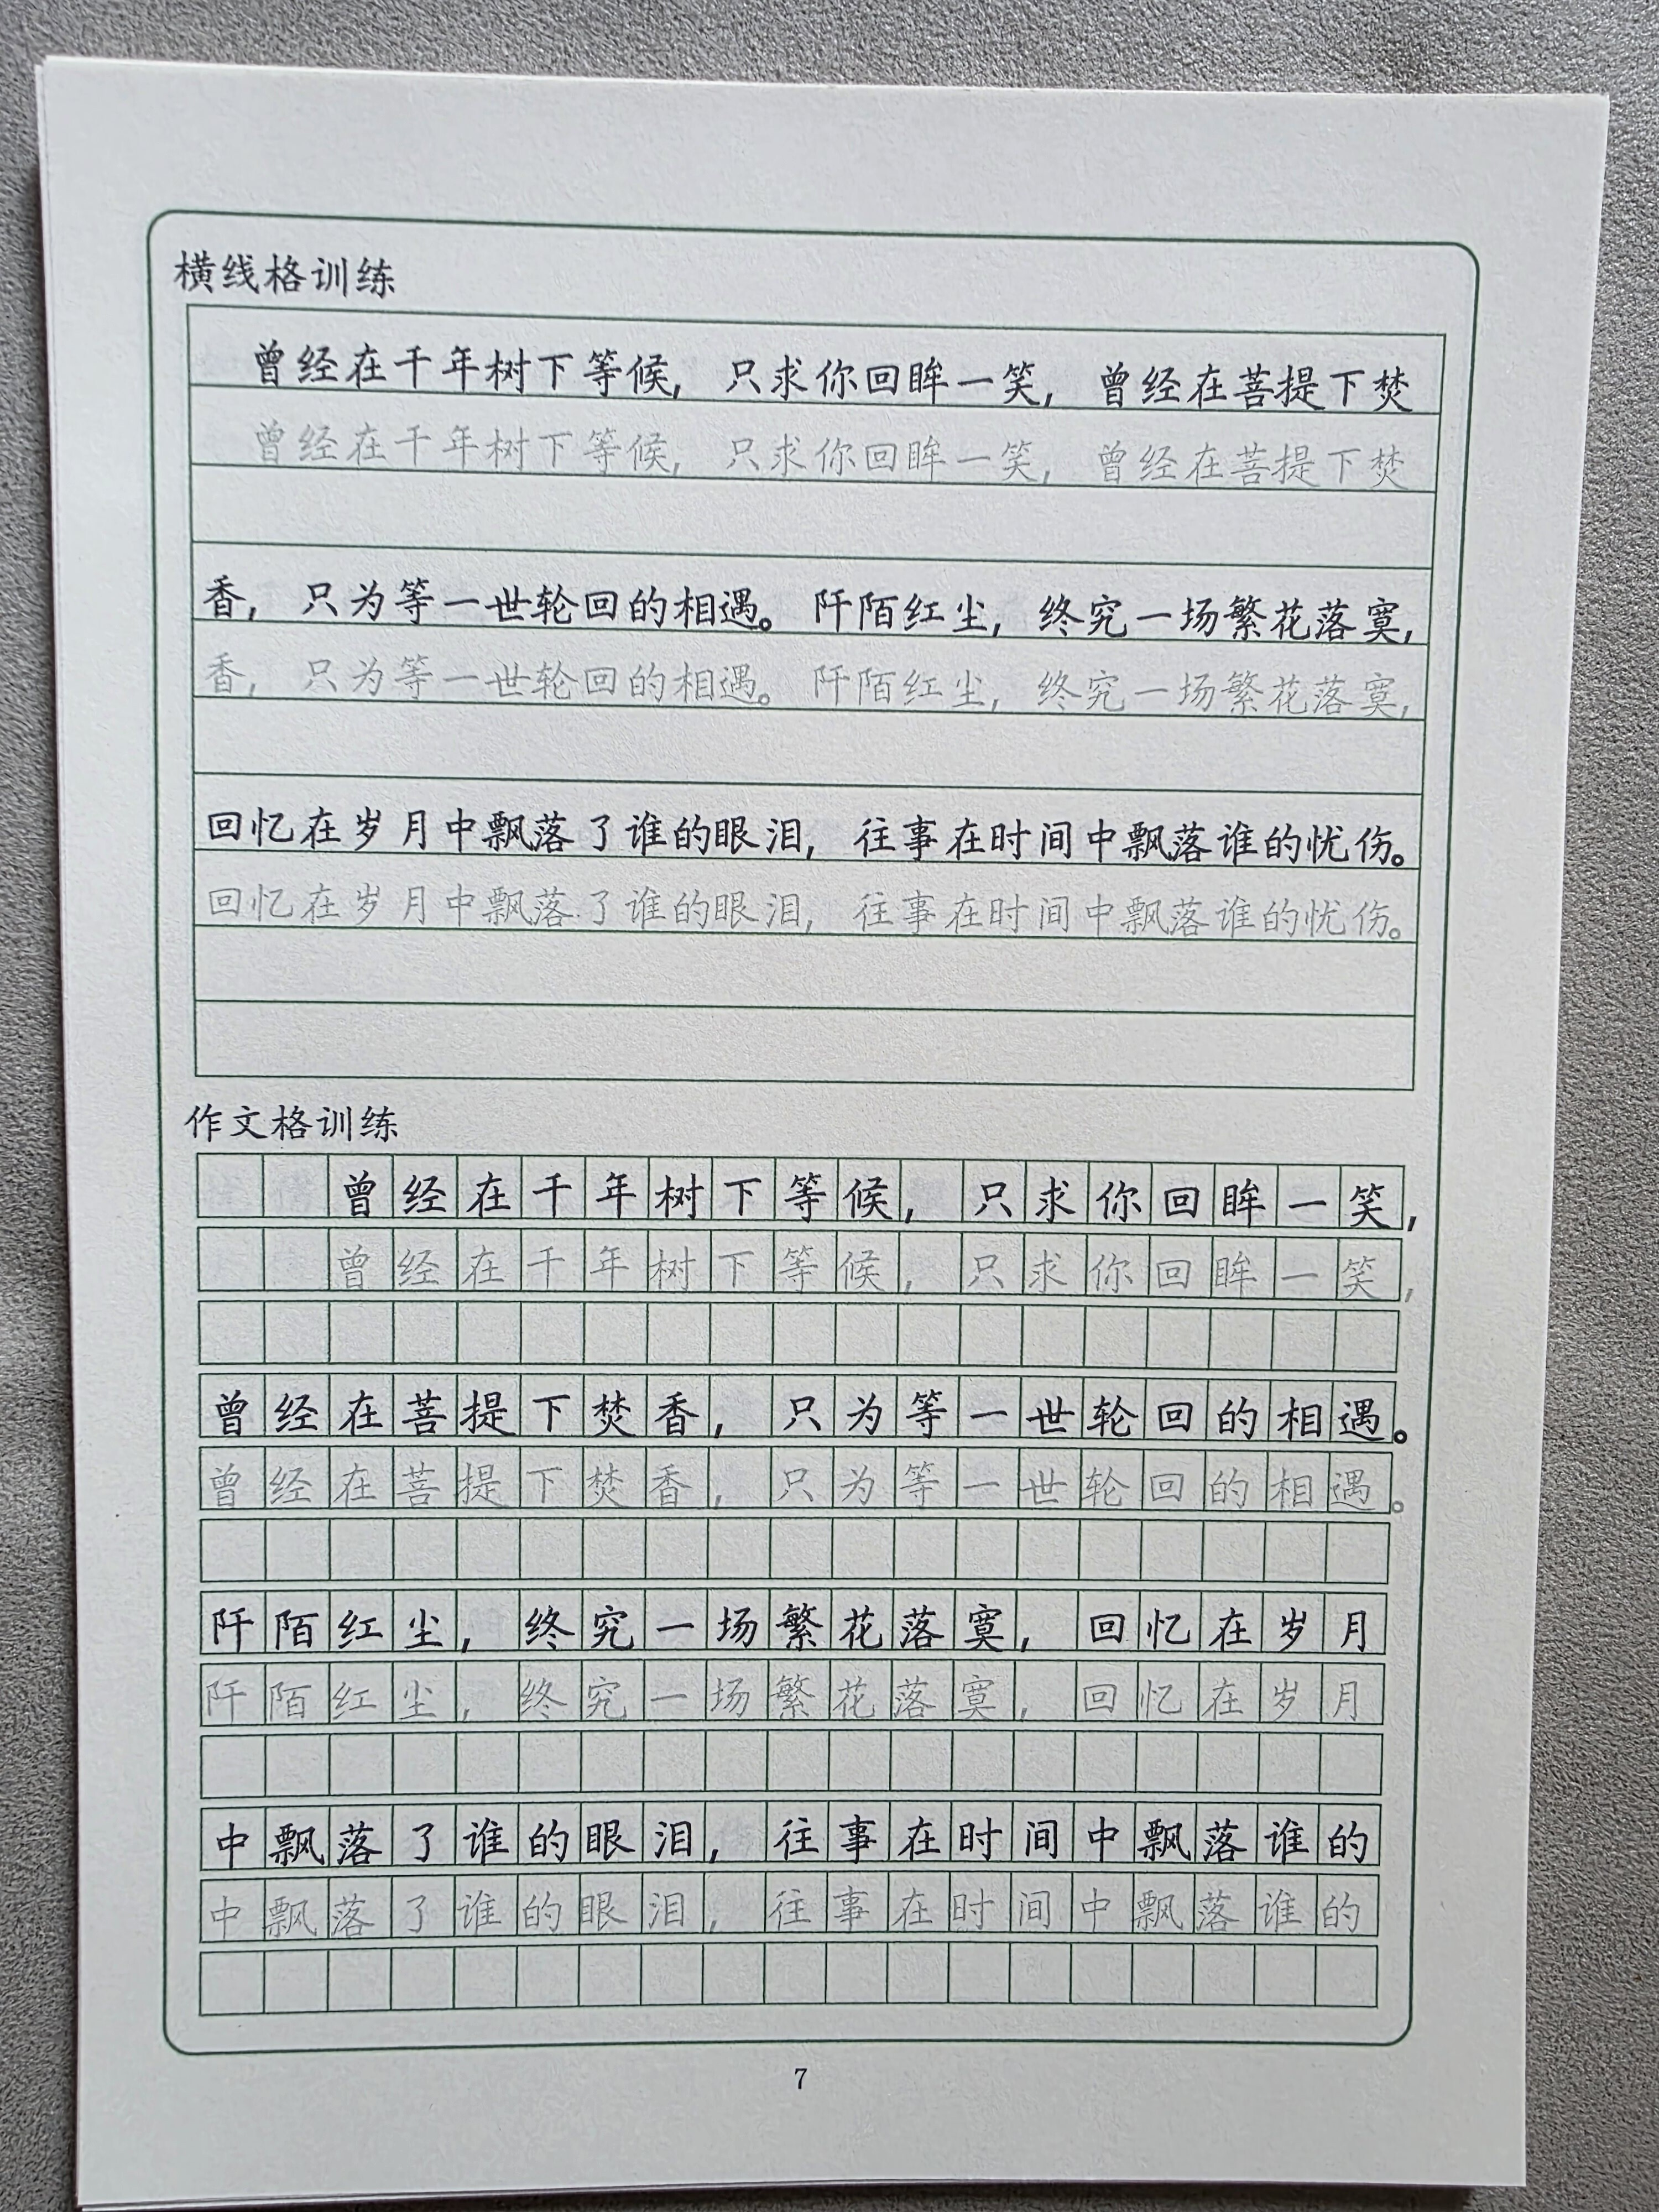 横线格训练
曾经在千年树下等候，只求你回眸一笑，曾经在菩提下焚
曾经在千年树下等候，只求你回眸一笑，曾经在菩提下焚
香，只为等一世轮回的相遇。阡陌红尘，终究一场繁花落寞，
香，只为等一世轮回的相遇。阡陌红尘，终究一场繁花落寞，
回忆在岁月中飘落了谁的眼泪，往事在时间中飘落谁的忧伤。
回忆在岁月中飘落了谁的眼泪，往事在时间中飘落谁的忧伤。
作文格训练
曾经在千年树下等候，只求你回眸一笑，
曾经在千年树下等候，只求你回眸一笑，
曾经在菩提下焚香，只为等一世轮回的相遇。
曾经在菩提下焚香，只为等一世轮回的相遇。
阡陌红尘，终究一场繁花落寞，回忆在岁月
阡陌红尘，终究一场繁花落寞，回忆在岁月
中飘落了谁的眼泪，往事在时间中飘落谁的
中飘落了谁的眼泪，往事在时间中飘落谁的
7